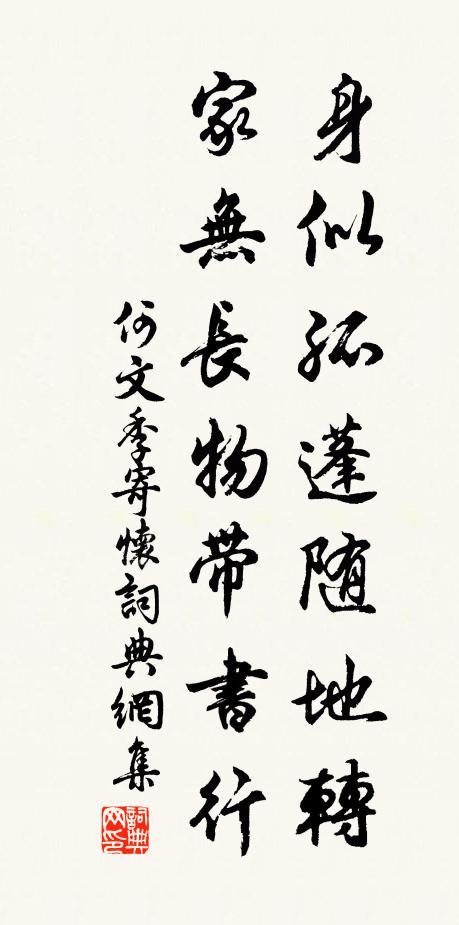 身似孤蓬随地轉
家無長物帶書行
何文季寄懷詞典網集
詞典
网印